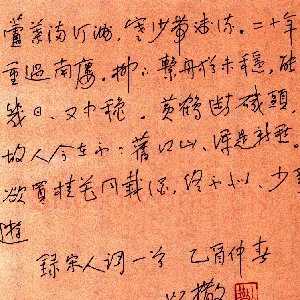 蘆葉满汀洲，寒沙带浅流。二十年
重過南樓。柳下繫舟猶未穩，能
幾日，又中秋。黄鶴断磯頭，
故人今在不？舊江山，渾是新愁。
欲買桂花同載酒，终不似，少年
遊
録宋人词一首 乙酉仲春